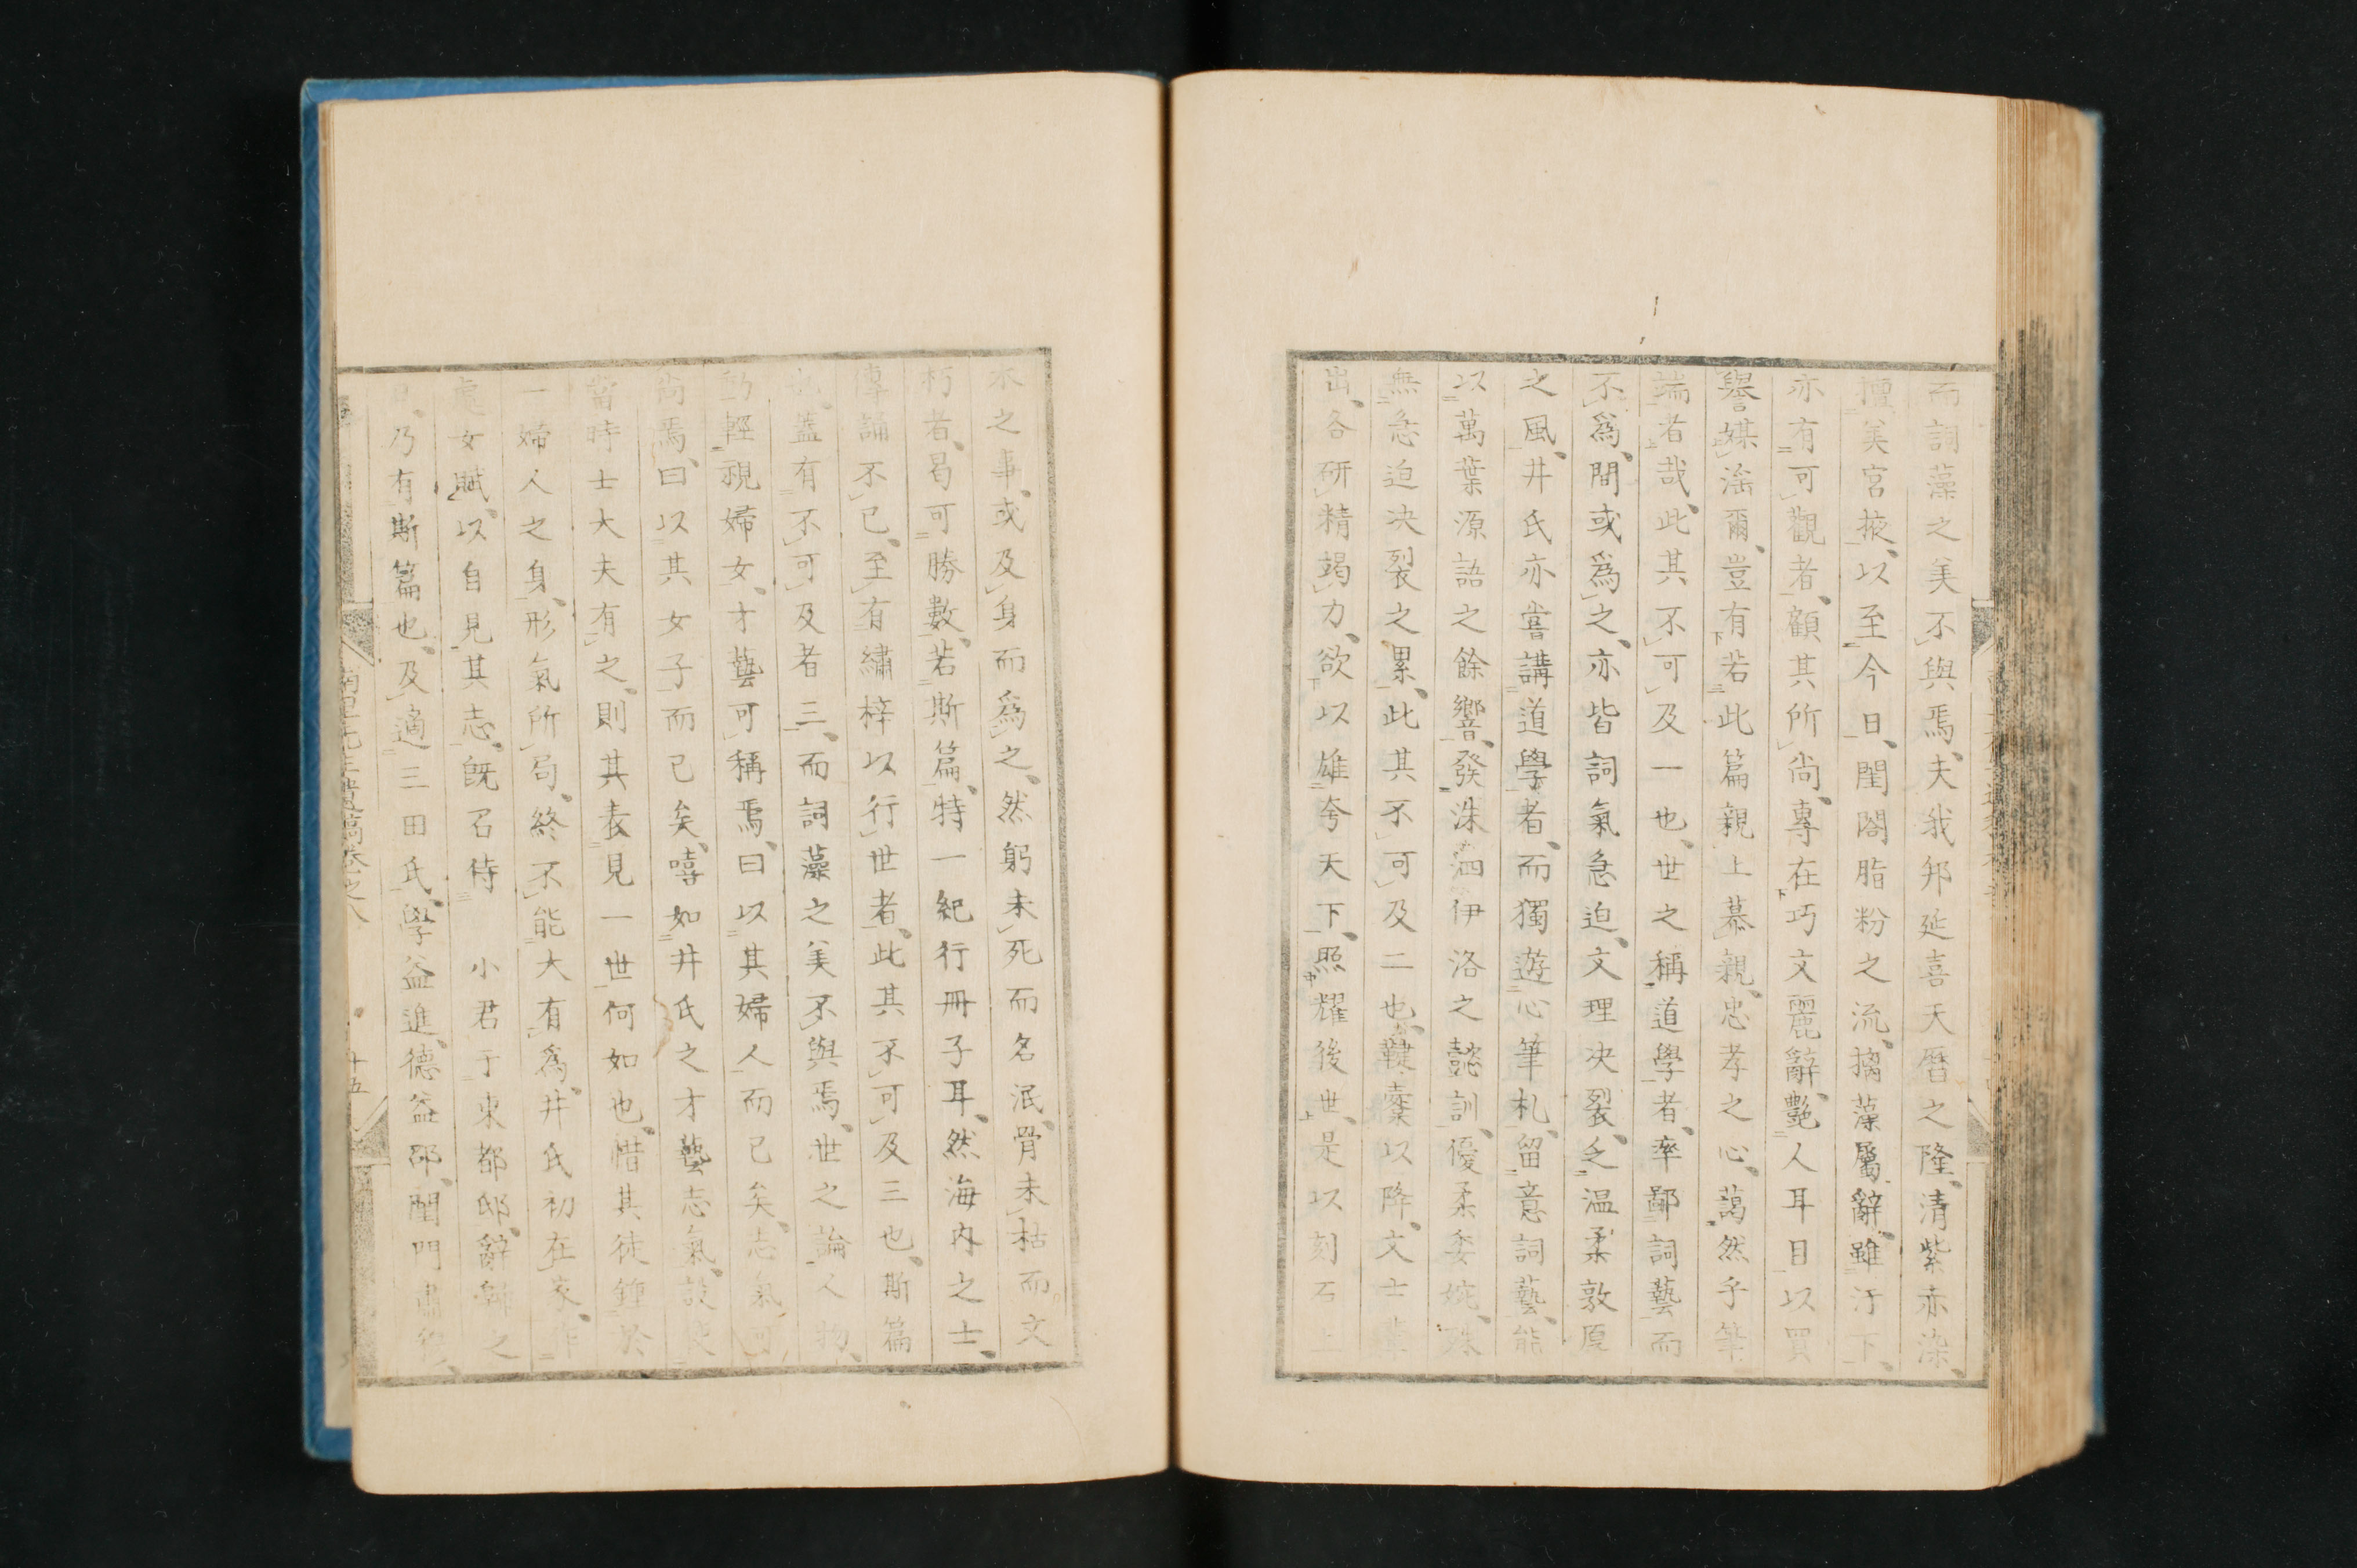 而詞藻之美不與焉夫我邦延喜天曆之隆清紫赤染
擅美宮掖以至今日閨閤脂粉之流摛藻屬辭雖汙下
亦有可觀者顧其所尚專在巧文麗辭艷人耳目以買
譽媒淫爾豈有若此篇親上慕親忠孝之心藹然乎筆
端者哉此其不可及一也世之稱道學者率鄙詞藝而
不爲間或爲之亦皆詞氣急迫文理决裂乏温柔敦厚
之風井氏亦嘗講道學者而獨遊心筆札留意詞藝能
以萬葉源語之餘響發洙泗伊洛之懿訓優柔委婉殊
無急迫决裂之累此其不可及二也鞬櫜以降文士輩
出各研精竭力欲以雄夸天下照耀後世是以刻石上
木之事或及身而爲之然躬未死而名泯骨未枯而文
朽者曷可勝數若斯篇特一紀行冊子耳然海内之士
傳誦不已至有繡梓以行世者此其不可及三也斯篇
也蓋有不可及者三而詞藻之美不與焉世之論人物
乃輕視婦女才藝可稱焉曰以其婦人而已矣志氣可
尚焉曰以其女子而已矣嘻如井氏之才藝志氣設使
當時士大夫有之則其表見一世何如也惜其徒鍾於
一婦人之身形氣所局終不能大有爲井氏初在家作
處女賦以自見其志既召侍 小君于東都邸辭歸之
日乃有斯篇也及適三田氏學益進德益邵閨門肅
卷之八
十五